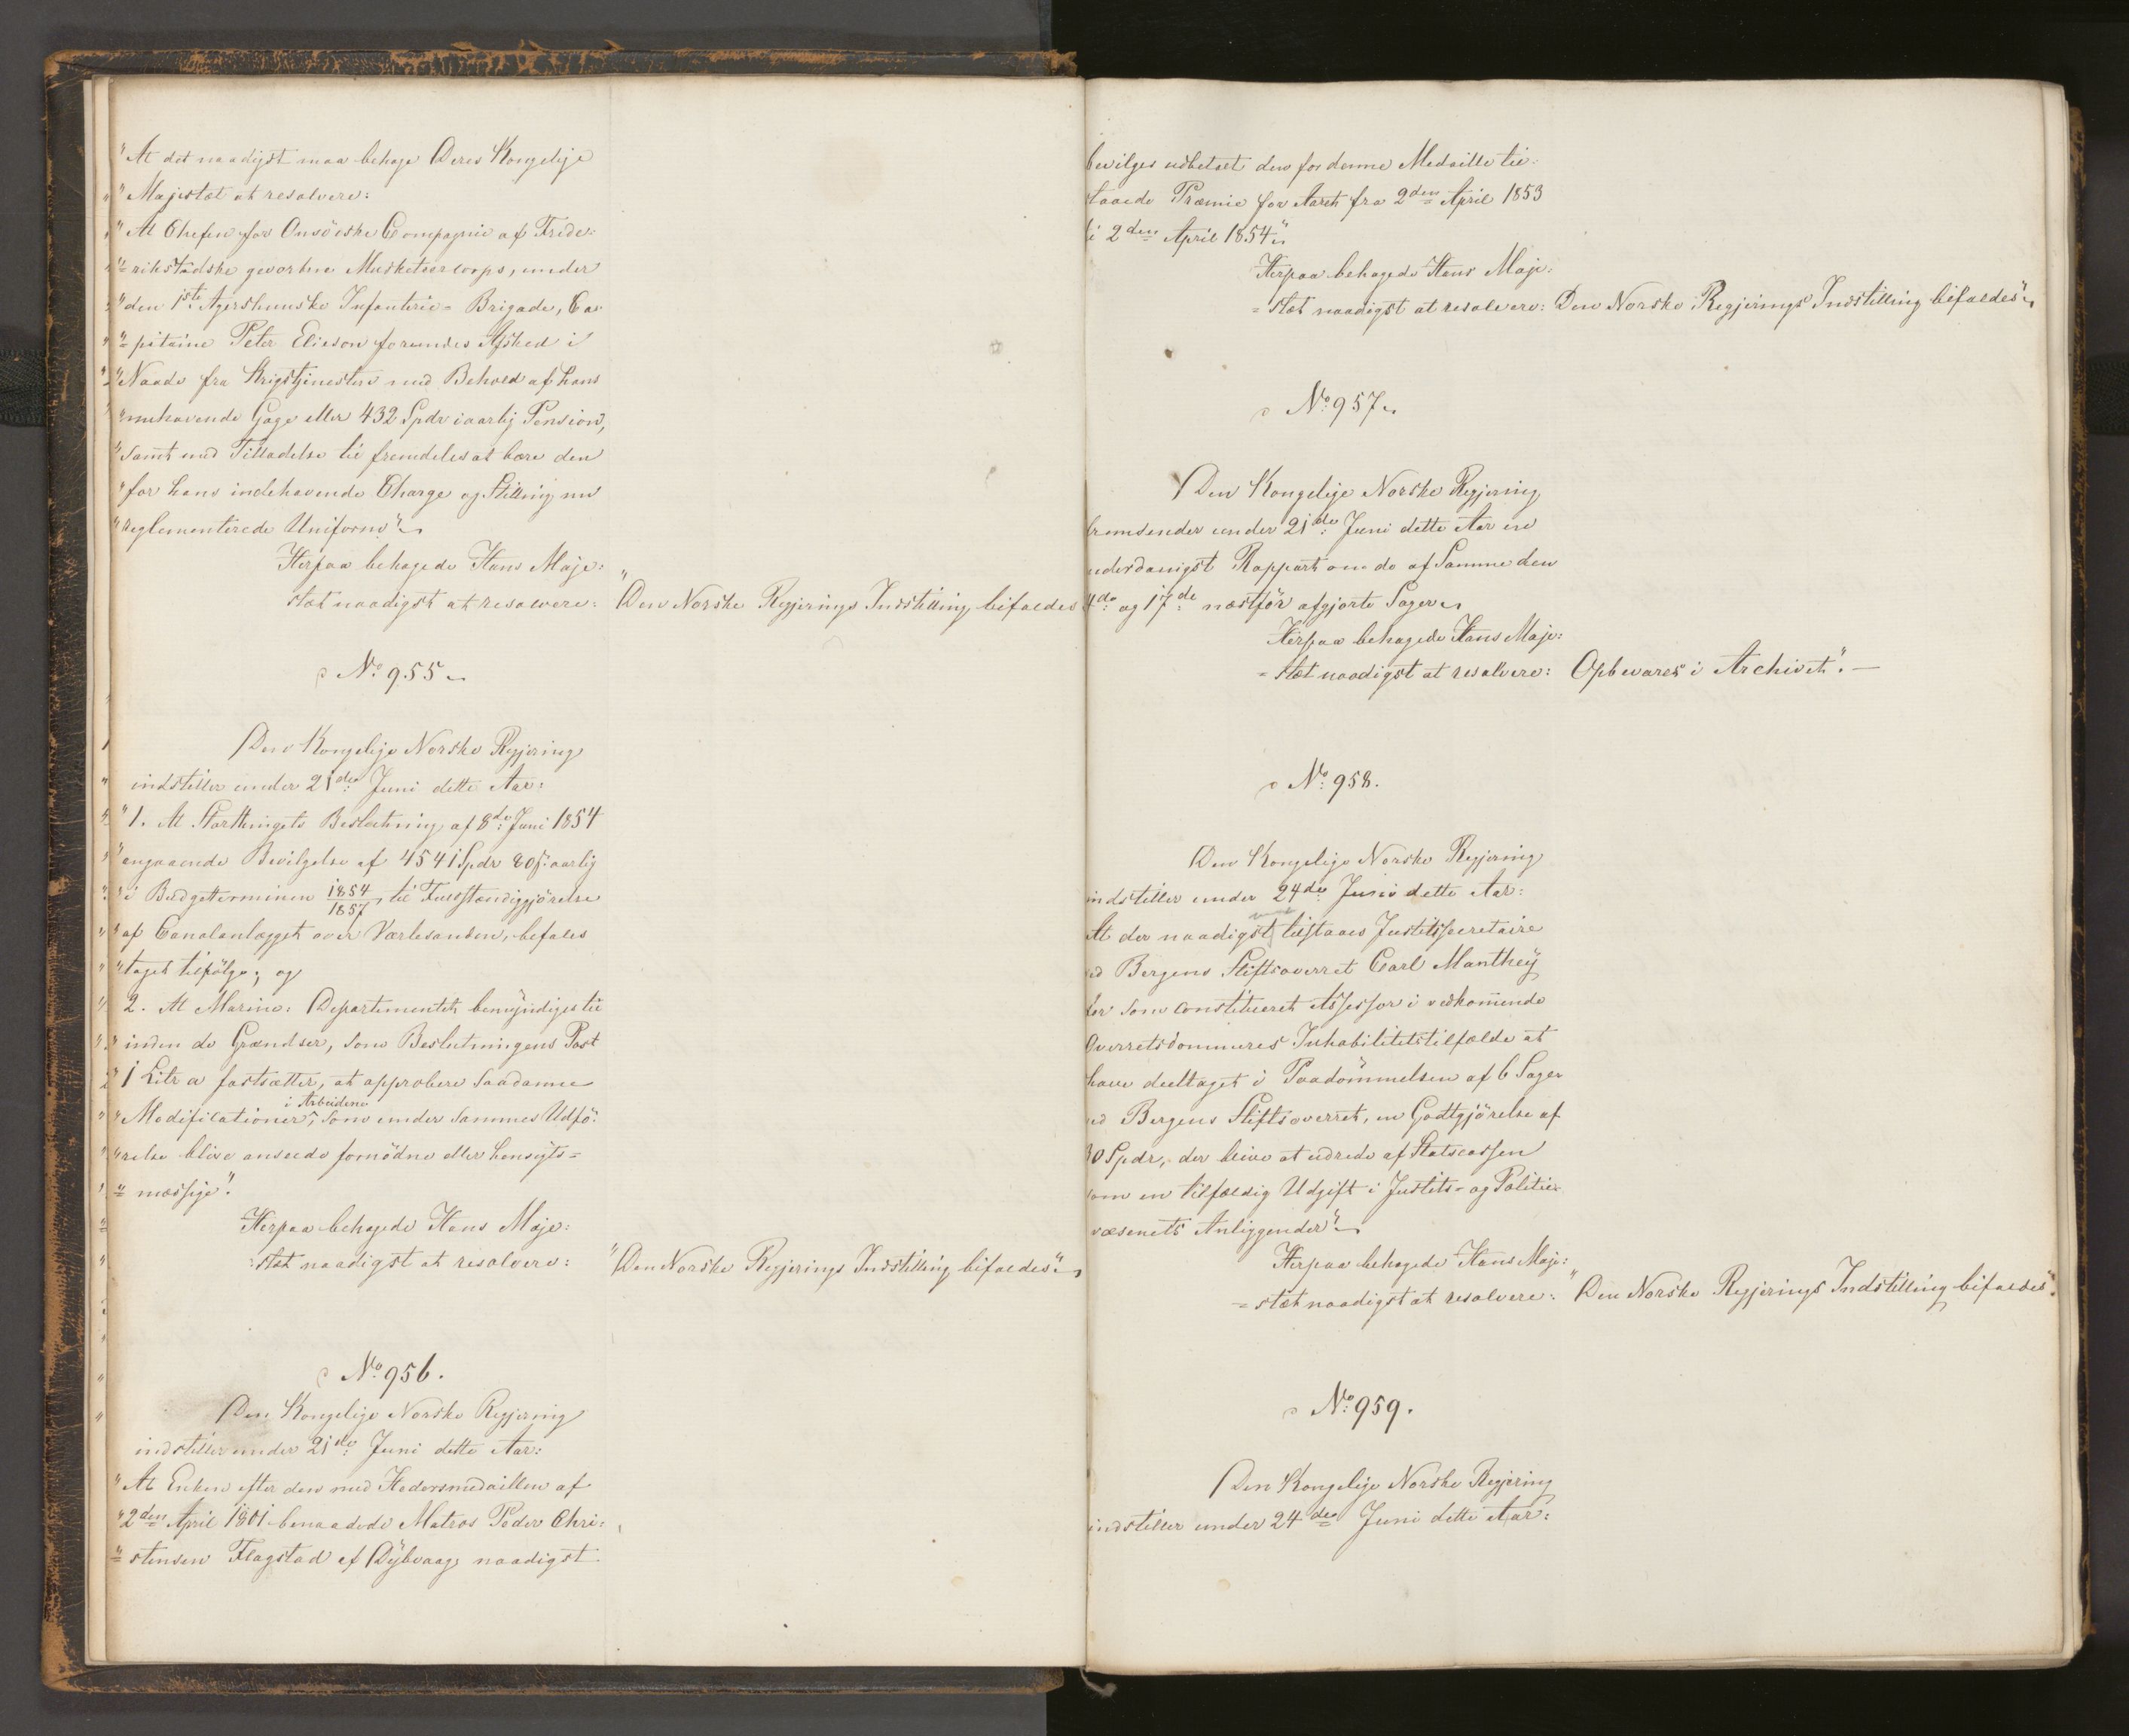 "At det naadigst maa behage Deres Kongelige
"Majestæt at resolvere:
"At Chefen for Onsöeske Compagnie af Frede:
"=rikstadske gevorbne Musketeercorps, under
"den 1ste Agershuuske Infanterie=Brigade, Ca=
"=pitaine Peter Elieson forundes Afsked i
"Naade fra Krigstjenesten med Behold af hans
"nuhavende Gage eller 432 Spdr i aarlig Pension,
"samt med Tilladelse til fremdeles at bære den
"for hans indehavende Charge og Stilling nu
"reglementerede Uniform".
Herpaa behagede Hans Maje:
stæt naadigst at resolvere: "Den Norske Regjerings Indstilling bifaldes
No 955.
Den Kongelige Norske Regjering
indstiller under 21de Juni dette Aar:
"1. At Storthingets Beslutning af 8de Juni 1854
"angaaende Bevilgelse af 4541 Spdr 80 s aarlig
"i Budgetterminen 1854/1857 til Fuldstændiggjörelse
"af Canalanlægget over Værlesanden, befales
"taget tilfölge; og
2. At Marine=Departementet bemyndiges til
"inden de Grændser, som Beslutningens Post
"1 Litr a fastsætter, at approbere saadanne
"Modificationer i Arbeidene, som under sammes Udfö=
"relse blive anseede fornödne eller hensigts=
"=mæssige".
Herpaa behagede Hans Maje:
=stæt naadigst at resolvere: "Den Norske Regjerings Indstilling bifaldes".
No 956.
Den Kongelige Norske Regjering
indstiller under 21de Juni dette Aar:
"At Enken efter den med Hædersmedaillen af
"2den April 1801 benaadede Matros Peder Chri=
"=stensen Flagstad af Dybvaag naadigst
bevilges udbetalt den for denne Medaille til=
staaede Præmie for Aaret fra 2den April 1853
til 2den April 1854".
Herpaa behagede Hans Maje:
=stæt naadigst at resolvere: Den Norske Regjerings Indstilling bifaldes".
No 957.
Den Kongelige Norske Regjering
fremsender under 21de Juni dette Aar en
underdanigst Rapport om de af Samme den
4de og 17de næstför afgjorte Sager.
Herpaa behagede Hans Maje:
=stæt naadigst at resolvere: Opbevares i Archivet". —
No 958.
Den Kongelige Norske Regjering
indstiller under 24de Juni dette Aar:
At der naadigst tilstaaes Justitssecretaire
ved Bergens Stiftsoverret Carl Manthey
for som constitueret Assessor i vedkommende
Overretsdommeres Inhabilitetstilfælde at
have deeltaget i Paadömmelsen af 6 Sager
ved Bergens Stiftsoverret, en Godtgjörelse af
30 Spdr, der blive at udrede af Statscassen
som en tilfældig Udgift i Justits= og Politie=
væsenets Anliggender".
Herpaa behagede Hans Maje:
=stæt naadigst at resolvere: "Den Norske Regjerings Indstilling bifaldes".
No 959.
Den Kongelige Norske Regjering
indstiller under 24de Juni dette Aar: